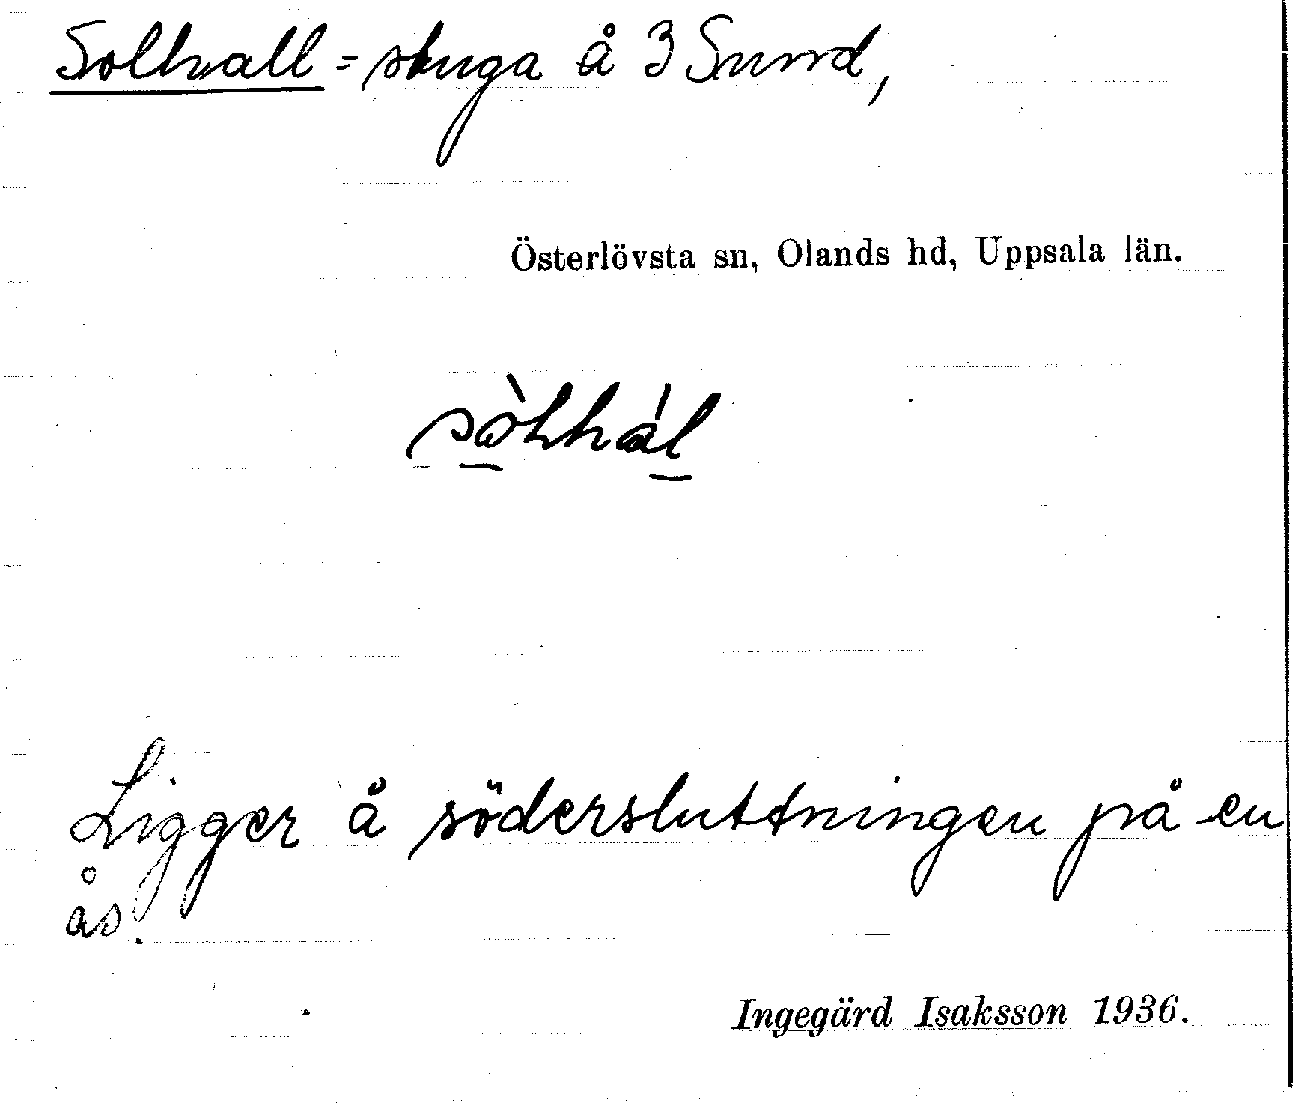 Solhall = stuga å 3 Sund,
Österlövsta sn, Olands hd, Uppsala län.
sòlhál
Ligger å södersluttningen på en
ås.
Ingegärd Isaksson 1936.